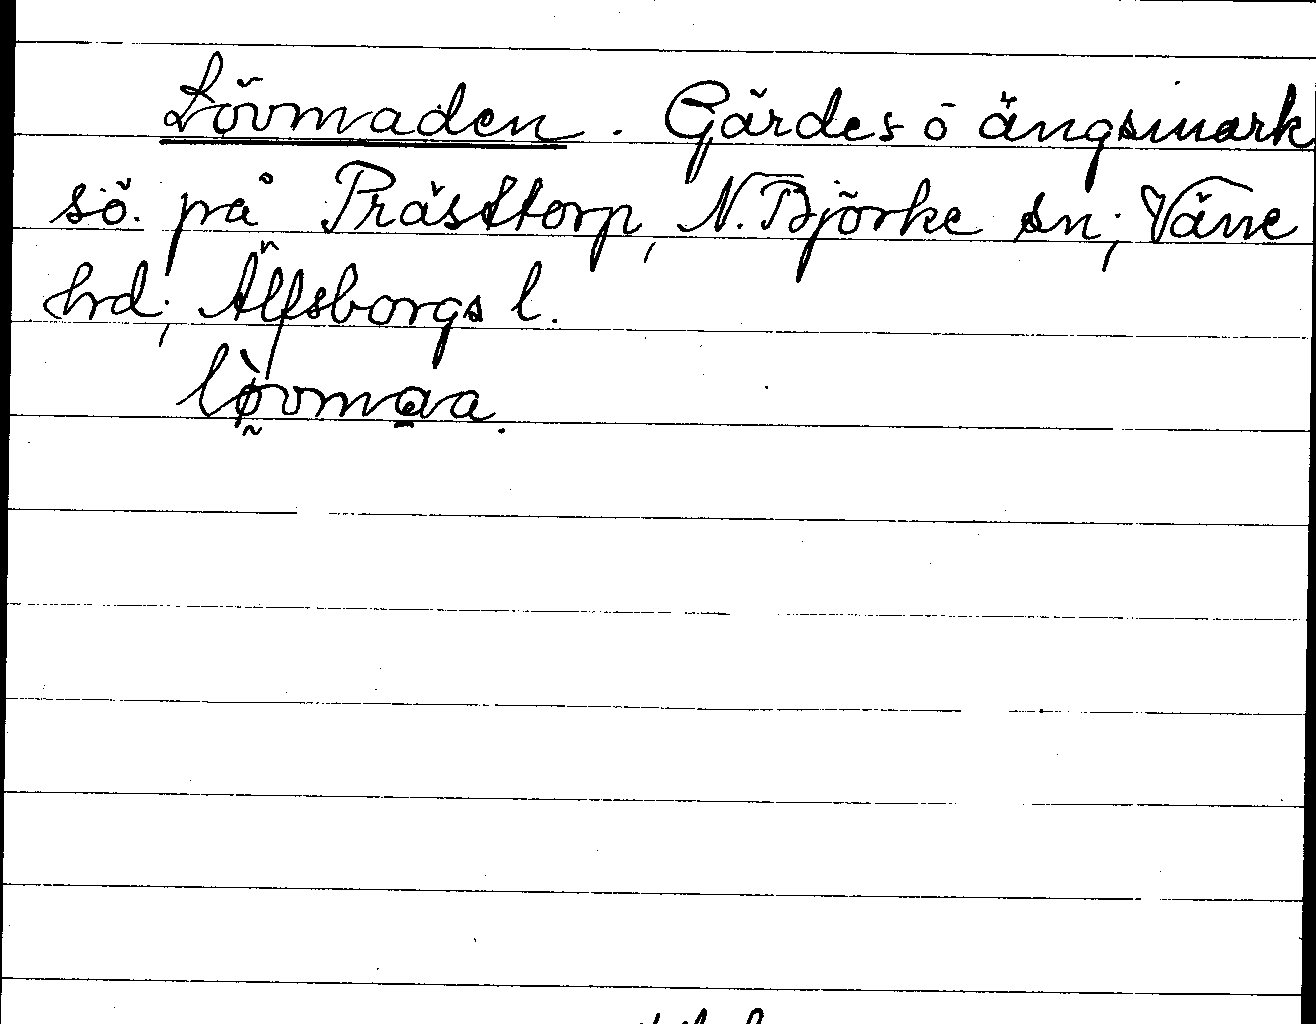 Lövmaden. Gärdes- o ängsmark
sö. på Prästtorp, N. Björke sn; Väne
hrd; Älfsborgs l.
lø̀vmaa.